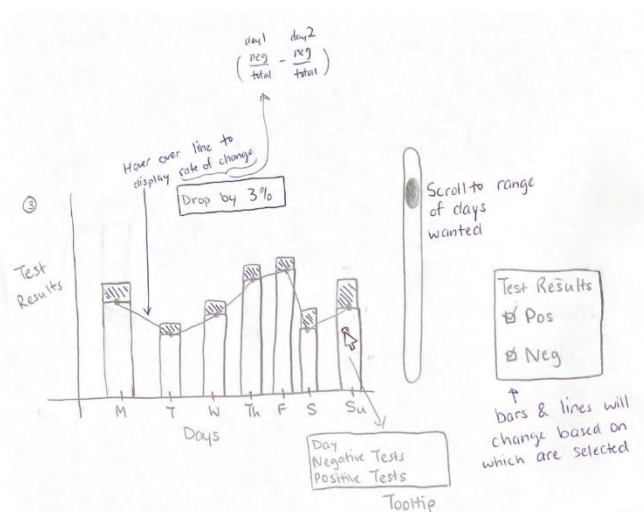 day1 day2
( neg/total - neg/total )
Hover over line to
display rate of change
Drop by 3%
③
Test
Results
M T W Th F S Su
Days
Scroll to range
of days
wanted
Test Results
Pos
Neg
bars & lines will
change based on
which are selected
Day
Negative Tests
Positive Tests
Tooltip